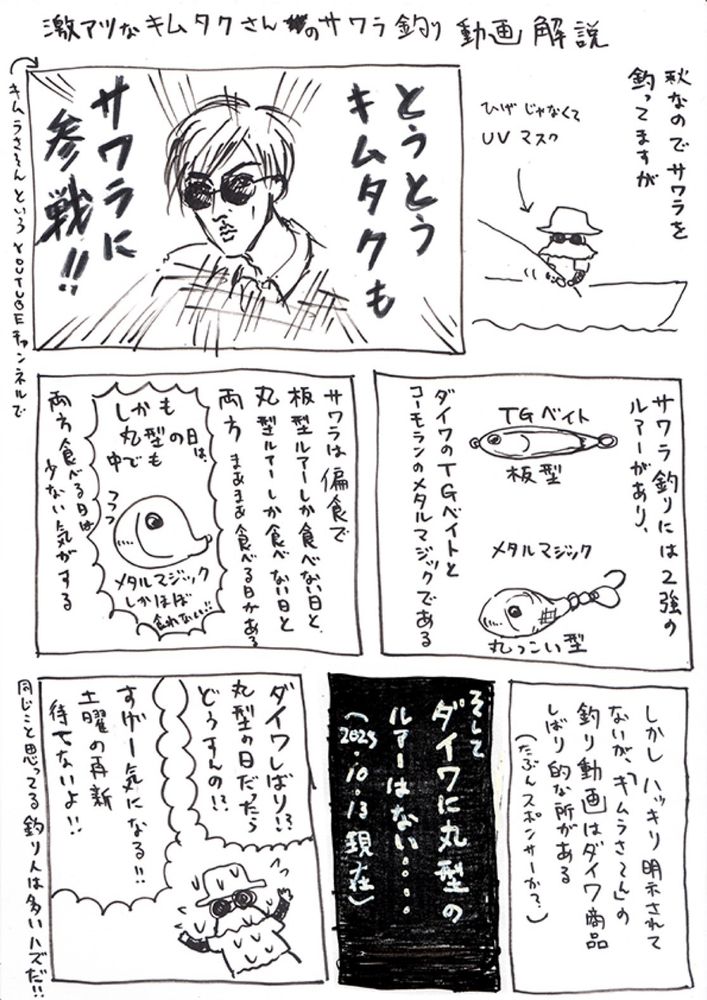 激アツなキムタクさんのサワラ釣り動画解説
秋なのでサワラを
釣ってますが
ひげじゃなくて
UVマスク
とうとう
キムタクも
サワラに
参戦!!
キムラさ〜んというYOUTUBEチャンネルで
サワラ釣りには2強の
ルアーがあり、
TGベイト
板型
メタルマジック
丸っこい型
ダイワのTGベイトと
コーモランのメタルマジックである
サワラは偏食で
板型ルアーしか食べない日と、
丸型ルアーしか食べない日と
両方まあまあ食べる日がある
しかも
丸型の日は、
中でも
メタルマジック
しかほぼ
食わない!!
両方食べる日は
少ない気がする
しかしハッキリ明示されて
ないが、「キムラさ〜ん」の
釣り動画はダイワ商品
しばり的な所がある
(たぶんスポンサーか?)
そして
ダイワに丸型の
ルアーはない....
(2025.10.13現在)
ダイワしばり!?
丸型の日だったら
どうすんの!?
すげー気になる!!
土曜の再新
待てないよ!!
同じこと思ってる釣り人は多いハズだ!!